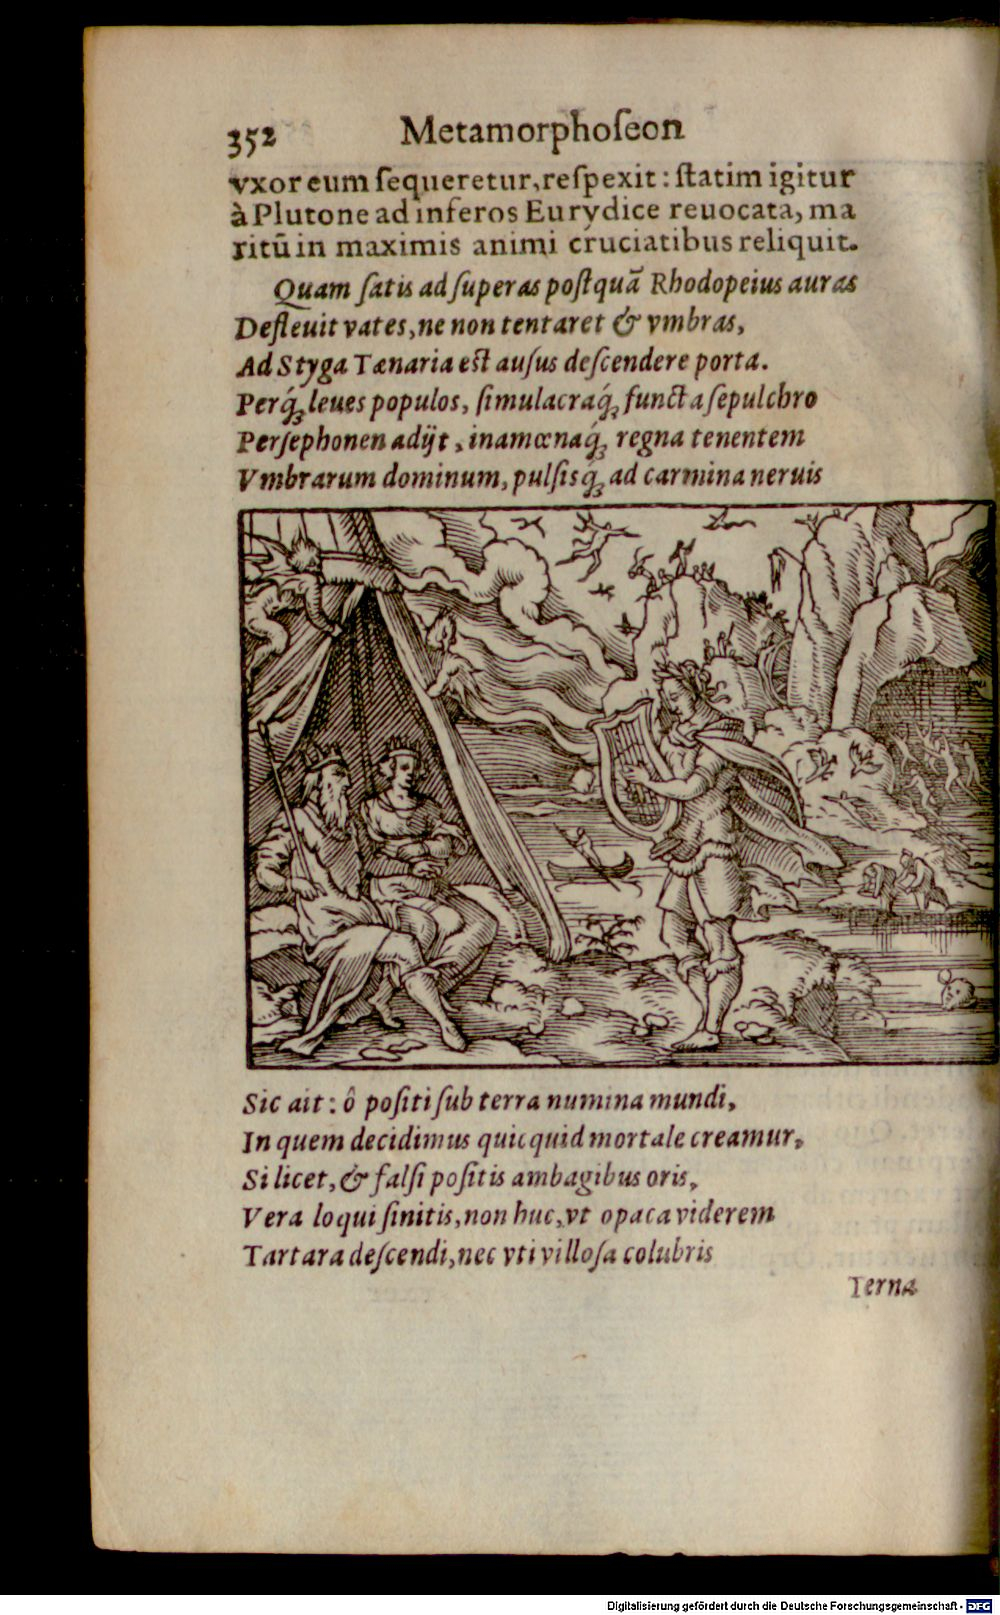 352 Metamorphoseon
vxor eum ſequeretur, reſpexit: ſtatim igitur
à Plutone ad inferos Eurydice reuocata, ma
ritũ in maximis animi cruciatibus reliquit.
Quam ſatis ad ſuperas poſtquã Rhodopeius auras
Defleuit vates, ne non tentaret & vmbras,
Ad Styga Tænaria eſt auſus deſcendere porta.
Perq́; leues populos, ſimulacraq́; functa ſepulchro
Perſephonen adijt, inamœnaq́; regna tenentem
Vmbrarum dominum, pulſisq́; ad carmina neruis
Sic ait: ô poſiti ſub terra numina mundi,
In quem decidimus quicquid mortale creamur,
Si licet, & falſi poſitis ambagibus oris,
Vera loqui ſinitis, non huc, vt opaca viderem
Tartara deſcendi, nec vti villoſa colubris
Terna
Digitalisierung gefördert durch die Deutsche Forschungsgemeinschaft - DFG